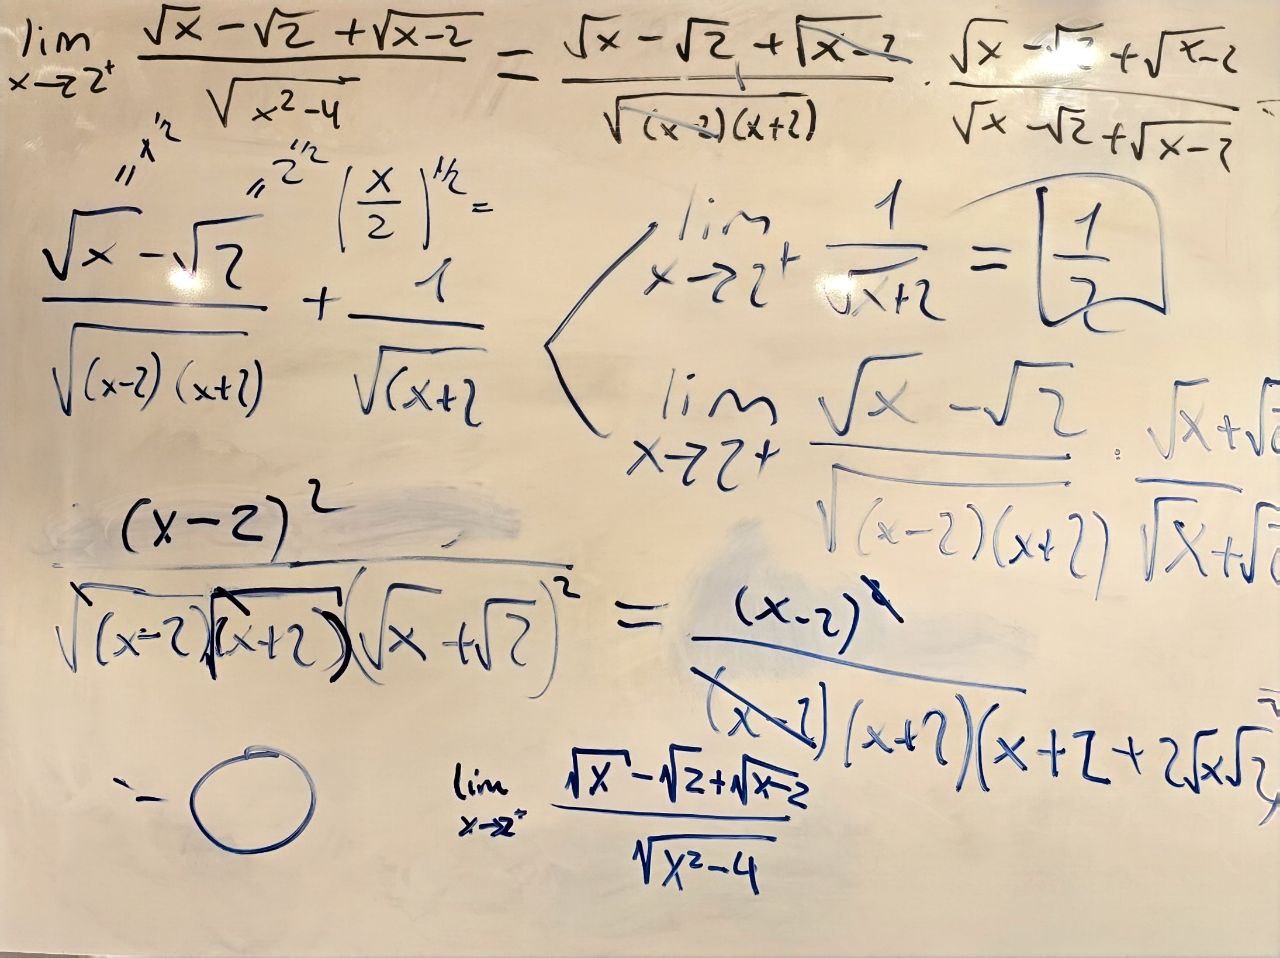 lim x→2⁺ (√x − √2 + √(x−2)) / √(x²−4) = (√x − √2 + √(x−2)) / √((x−2)(x+2)) · (√x − √2 + √(x−2)) / (√x − √2 + √(x−2)) =
" x^1/2
" 2^1/2 (x/2)^1/2 =
(√x − √2) / √((x−2)(x+2)) + 1 / √(x+2
lim x→2⁺ 1 / √(x+2) = 1/2
lim x→2⁺ (√x − √2) / √((x−2)(x+2)) · (√x + √2) / (√x + √2)
(x−2)² / √((x−2)(x+2)) (√x + √2)² = (x−2)² / (x−2)(x+2)(x+2+2√x√2)
= 0
lim x→2⁺ (√x − √2 + √(x−2)) / √(x²−4)